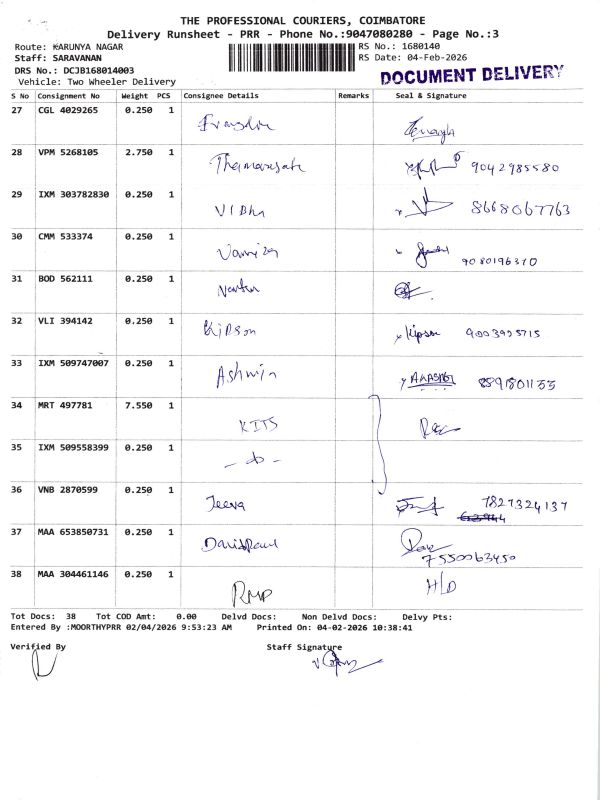 THE PROFESSIONAL COURIERS, COIMBATORE
Delivery Runsheet - PRR - Phone No.:9047080280 - Page No.:3
Route: KARUNYA NAGAR
RS No.: 1680140
Staff: SARAVANAN
RS Date: 04-Feb-2026
DRS No.: DCJB168014003
Vehicle: Two Wheeler Delivery
DOCUMENT DELIVERY
S No Consignment No Weight PCS Consignee Details Remarks Seal & Signature
27 CGL 4029265 0.250 1
28 VPM 5268105 2.750 1 9042985580
29 IXM 303782830 0.250 1 VIBha 8668067763
30 CMM 533374 0.250 1 9080196370
31 BOD 562111 0.250 1
32 VLI 394142 0.250 1 Kipson Kipson 9003995715
33 IXM 509747007 0.250 1 Ashwin AKASH
34 MRT 497781 7.550 1 KITS
35 IXM 509558399 0.250 1
36 VNB 2870599 0.250 1 Jeeva 7827324137
37 MAA 653850731 0.250 1 DavidPaul 7550063450
38 MAA 304461146 0.250 1 RMP H/D
Tot Docs: 38 Tot COD Amt: 0.00 Delvd Docs: Non Delvd Docs: Delvy Pts:
Entered By :MOORTHYPRR 02/04/2026 9:53:23 AM Printed On: 04-02-2026 10:38:41
Verified By Staff Signature